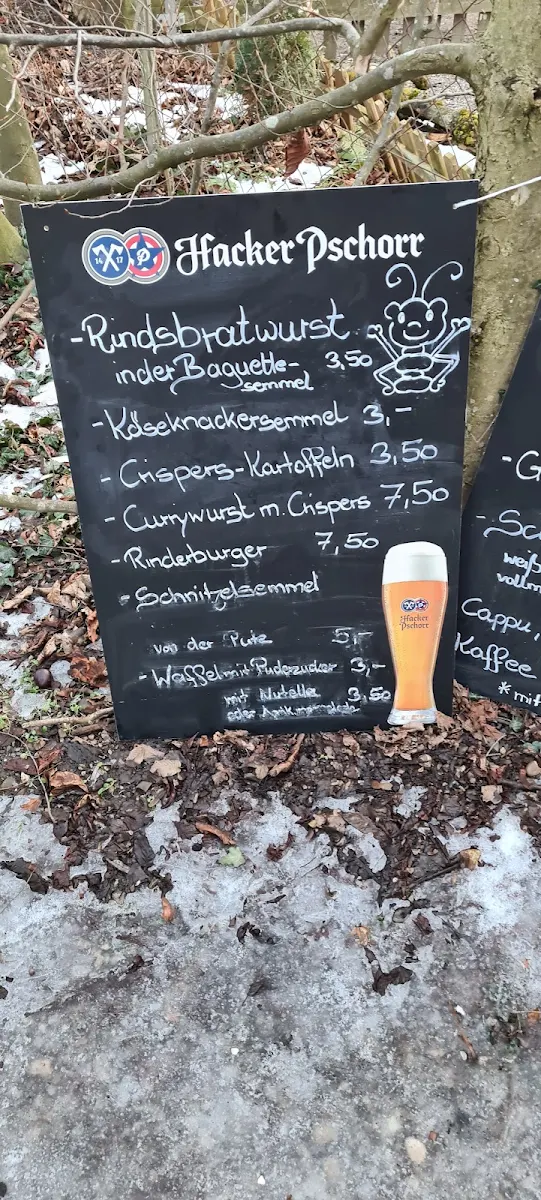 14 17
Hacker Pschorr
- Rindsbratwurst
in der Baguette-
semmel 3,50
- Käseknackersemmel 3,-
- Crispers-Kartoffeln 3,50
- Currywurst m. Crispers 7,50
- Rinderburger 7,50
- Schnitzelsemmel
von der Pute 5,-
- Waffel mit Puderzucker 3,-
mit Nutella 3,50
oder
Hacker
Pschorr
- G
- Sc
weiß
vollm
Cappu,
Kaffee
* mit